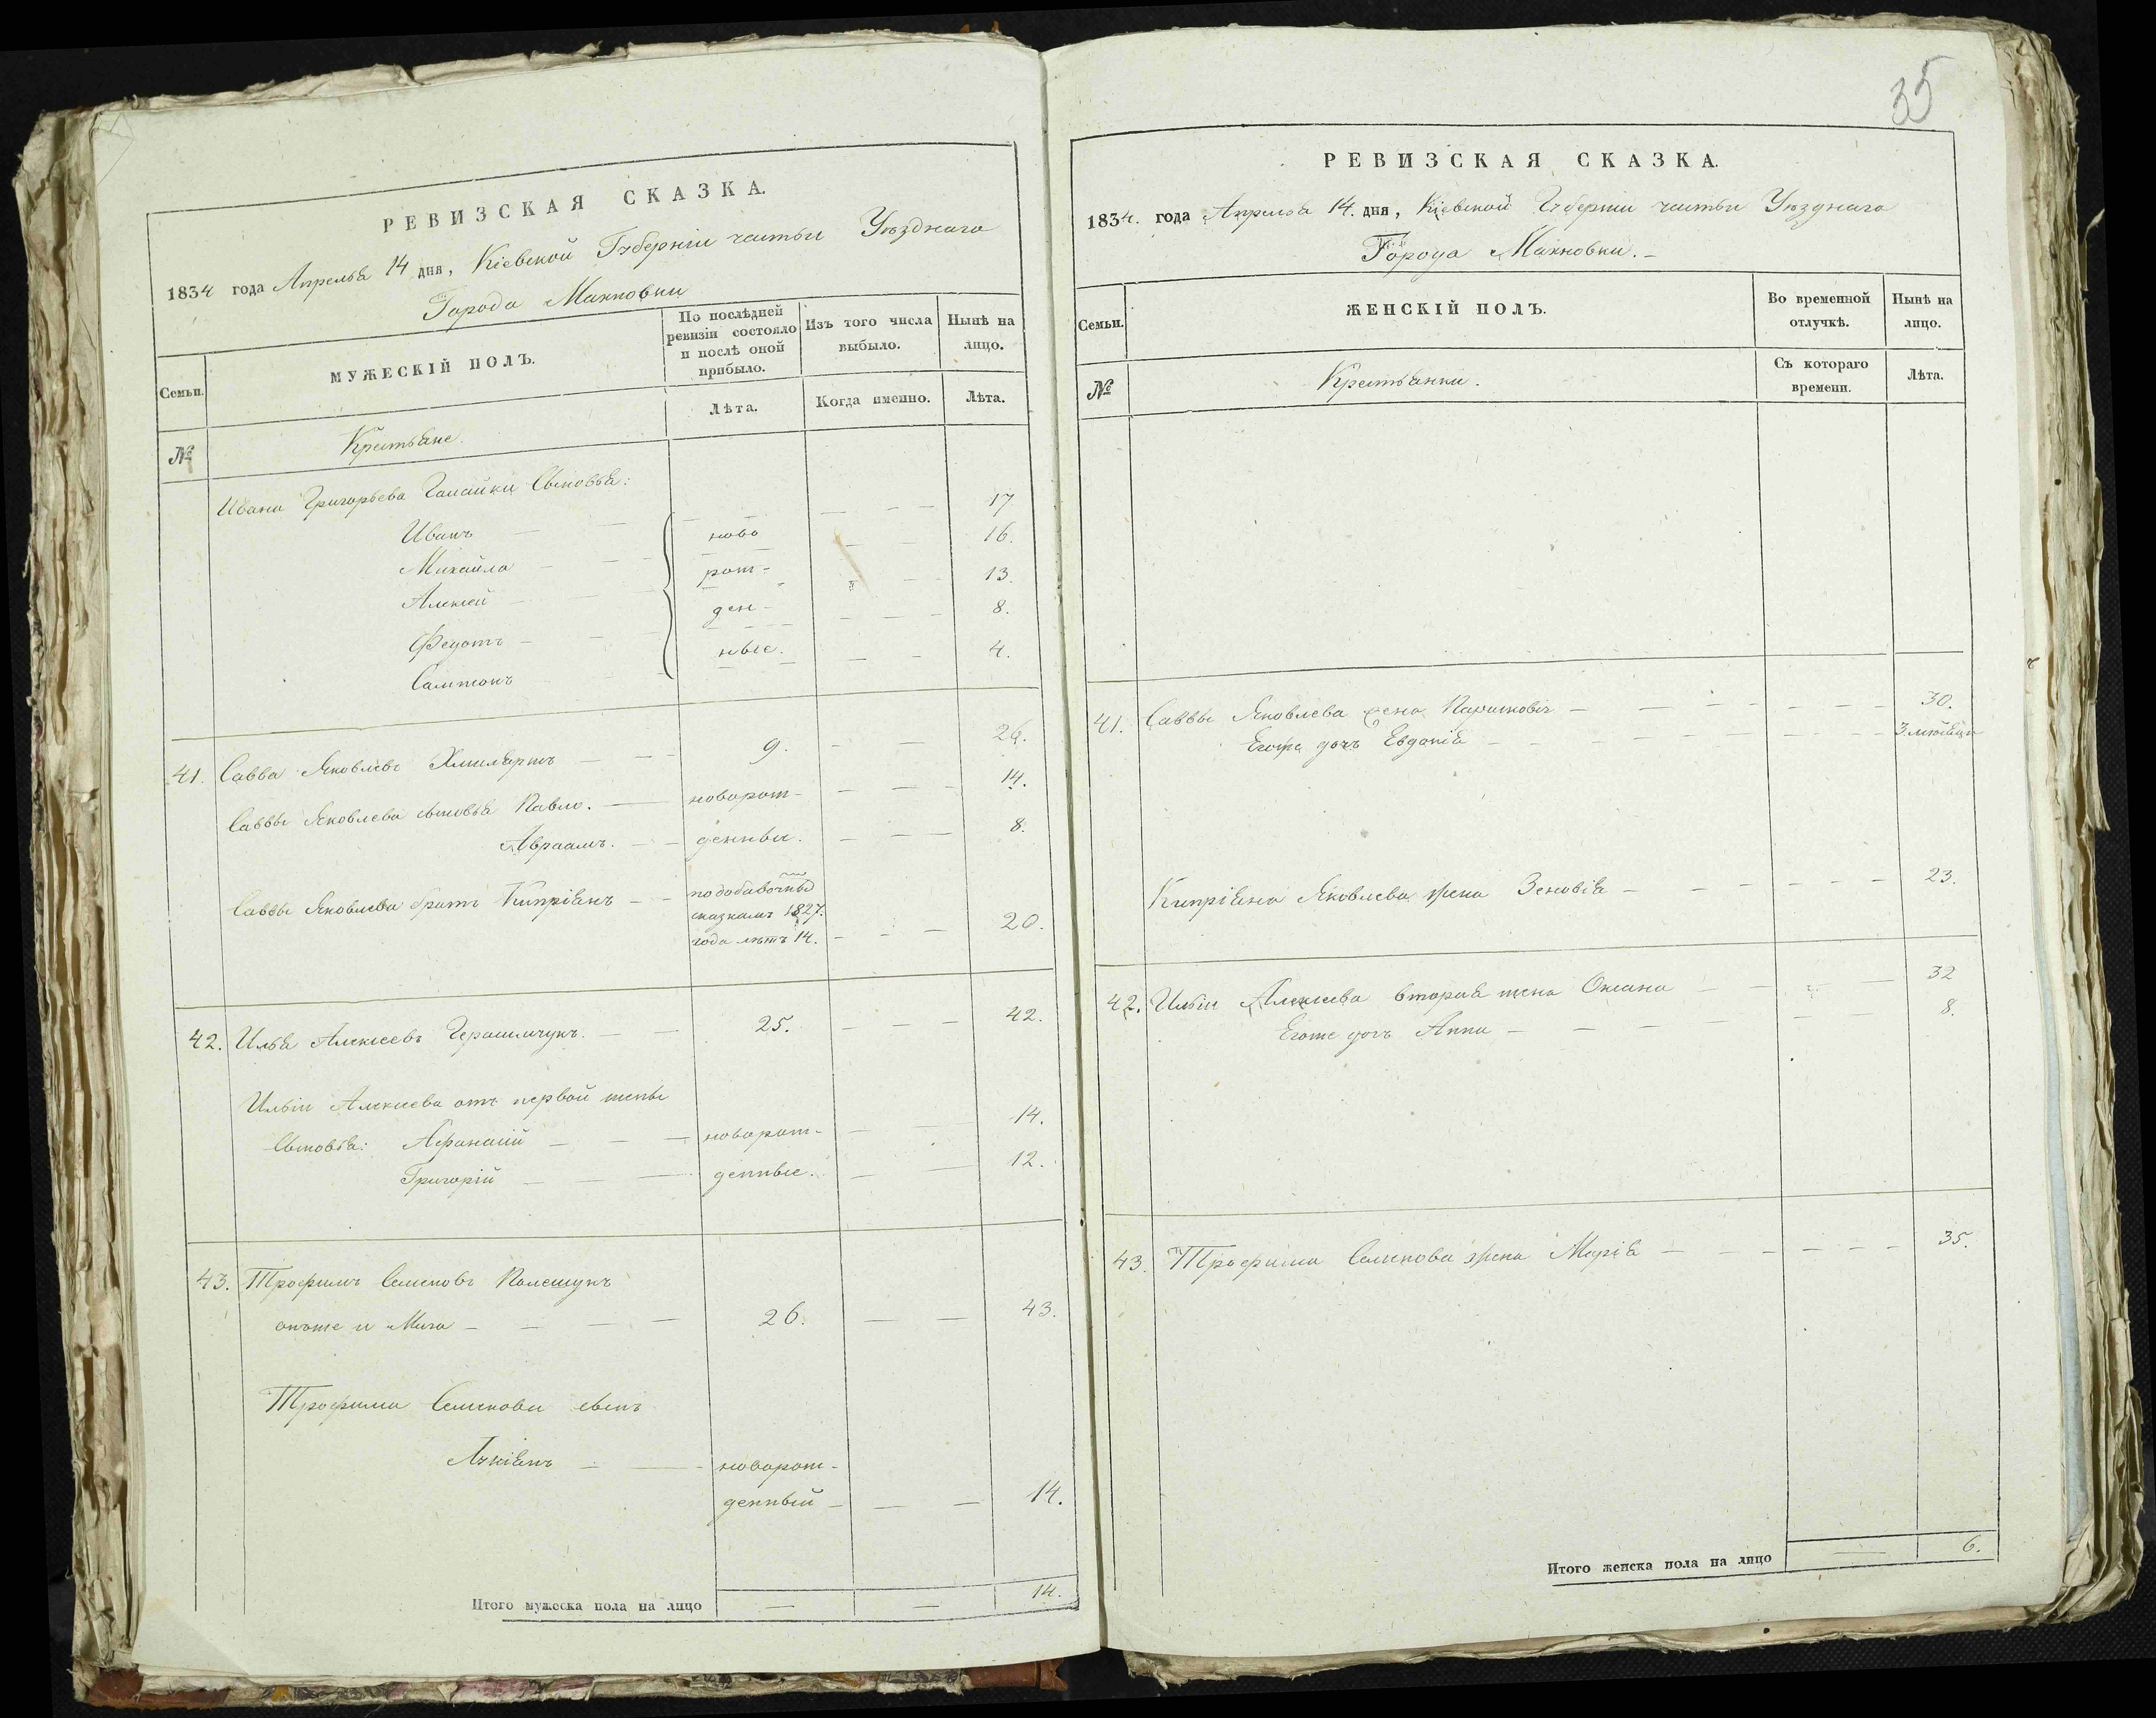 РЕВИЗСКАЯ СКАЗКА.
1834 года Апреля 14 дня, Кіевской Губерніи части Уѣзднаго
Города Махновки
Семьи.
МУЖЕСКІЙ ПОЛЪ.
По послѣдней ревизіи состояло и послѣ оной прибыло.
Изъ того числа выбыло.
Нынѣ на лицо.
№
Крестьяне.
Лѣта.
Когда именно.
Лѣта.
Ивана Григорьева сыновья:
Иванъ — — ново — — 17.
Михайла — — рож- — — 16.
Алексѣй — — ден- — — 13.
Федотъ — — ные. — — 8.
Сампсонъ — — 4.
41. Савва Яковлевъ — — 9. — —
Саввы Яковлева сыновья Павло. — новорож- — — 14.
Авраамъ. — — денныи. — — 8.
Саввы Яковлева братъ Кипріянъ — — по добавочный
сказкамъ 1827.
года лѣтъ 14. — — — 20.
42. Илья Алексеевъ Герасимчукъ. — — 25. — — — 42.
Ильи Алексѣева отъ первой жены
сыновья: Афанасій — — — новорож- — — 14.
Григорій — — — денные. — — 12.
43. Трофимъ Семеновъ Полещукъ
онъже и — — — — 26. — — 43.
Трофима Семенова сынъ
Лукіянъ — — новорож-
денный — — — 14.
Итого мужеска пола на лицо — — 14.
35
РЕВИЗСКАЯ СКАЗКА.
1834. года Апреля 14. дня, Кіевской Губерніи части Уѣзднаго
Города Махновки. —
Семьи.
ЖЕНСКІЙ ПОЛЪ.
Во временной отлучкѣ.
Нынѣ на лицо.
№
Крестьянки.
Съ котораго времени.
Лѣта.
41. Саввы Яковлева жена — — — — — — 30.
Егоже дочь Евдокія — — — — — — 3. мѣсяца
Кипріяна Яковлева жена Зеновія — — — — — — 23.
42. Ильи Алексѣева вторая жена Оксана — — — — 32
Егоже дочь Анна — — — — — — 8.
43. Трофима Семенова жена Марія — — — — — — 35.
Итого женска пола на лицо — 6.